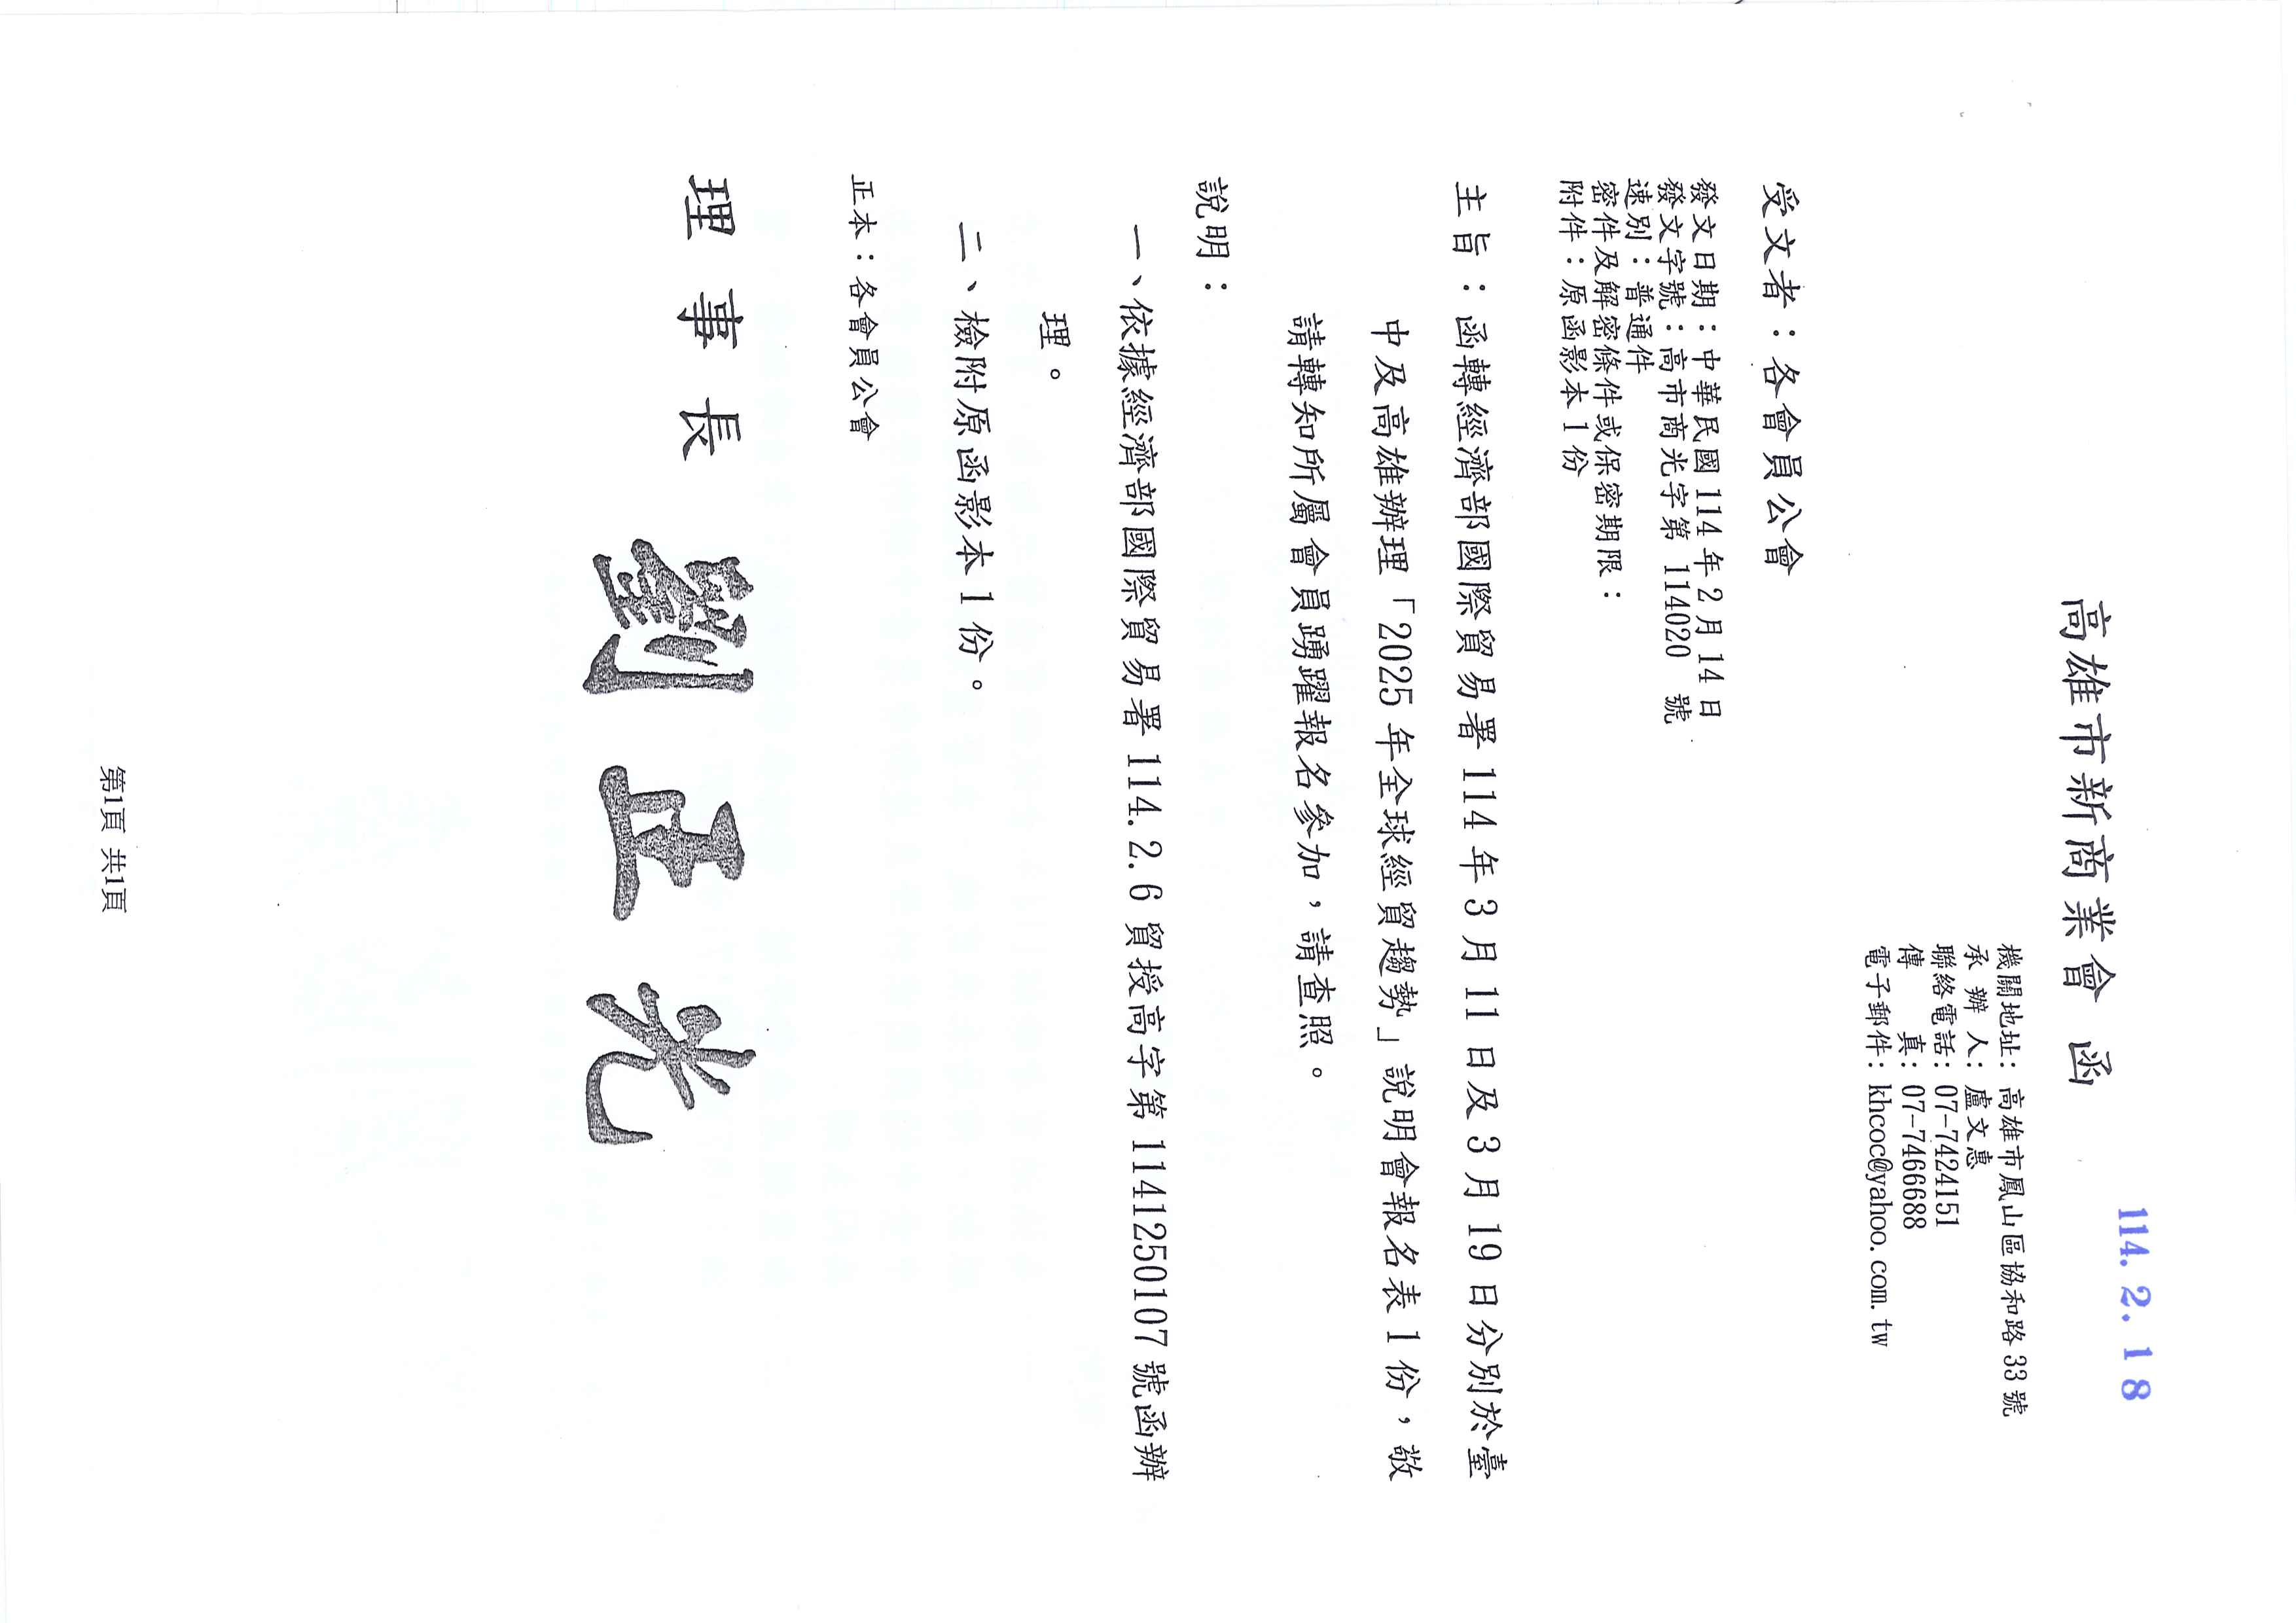 114.2.18
高雄市新商業會 函
機關地址：高雄市鳳山區協和路 33 號
承 辦 人：盧文惠
聯絡電話：07-7424151
傳　　真：07-7466688
電子郵件：khcoc@yahoo.com.tw
受文者：各會員公會
發文日期：中華民國 114 年 2 月 14 日
發文字號：高市商光字第 114020 號
速別：普通件
密件及解密條件或保密期限：
附件：原函影本 1 份
主旨：函轉經濟部國際貿易署 114 年 3 月 11 日及 3 月 19 日分別於臺
中及高雄辦理「2025 年全球經貿趨勢」說明會報名表 1 份，敬
請轉知所屬會員踴躍報名參加，請查照。
說明：
一、依據經濟部國際貿易署 114.2.6 貿授高字第 1141250107 號函辦
理。
二、檢附原函影本 1 份。
正本：各會員公會
理 事 長 劉 正 光
第1頁 共1頁